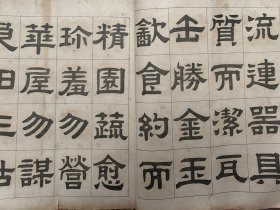 流連器具
質而潔瓦
缶勝金玉
㱃食約而
精園蔬愈
珍羞勿營
華屋勿謀
良田三姑